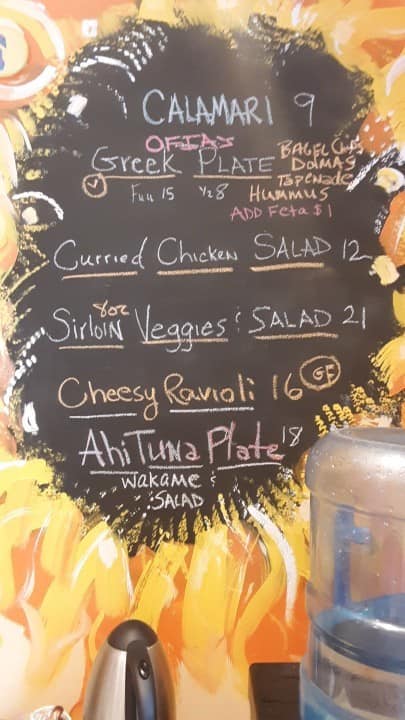 CALAMARI 9
OFIAS
Greek PLATE BAGEL Chips
DOLMAS
TAPENade
Full 15 1/2 8 HUMMUS
ADD Feta $1
Curried Chicken SALAD 12
8oz
Sirloin Veggies & SALAD 21
Cheesy Ravioli 16 GF
Ahi Tuna Plate 18
WAKAME &
SALAD